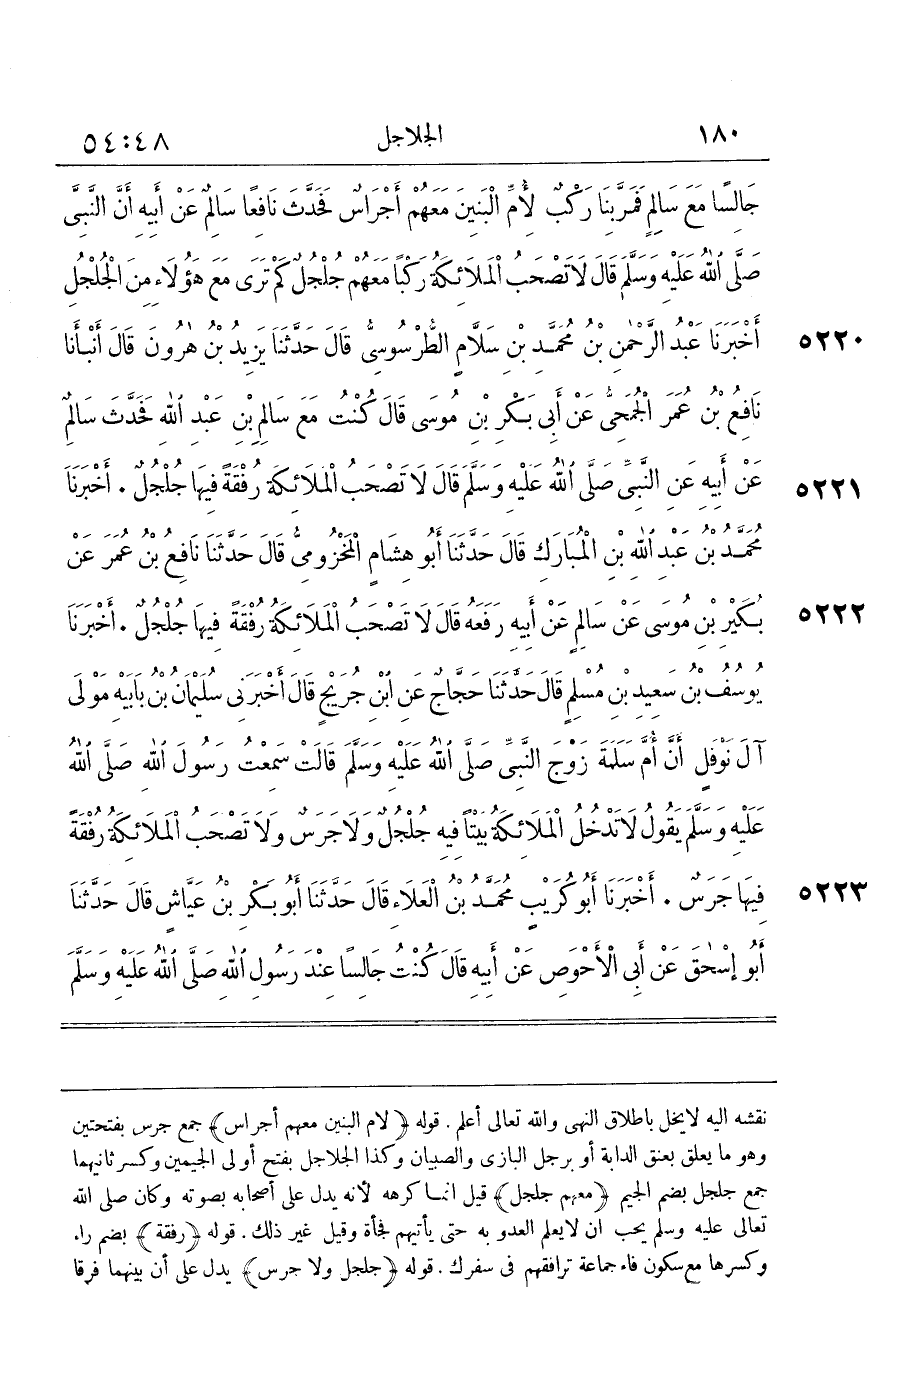 ١٨٠ الجلاجل ٥٤:٤٨
جَالِسًا مَعَ سَالِمٍ فَمَرَّ بِنَا رَكْبٌ لِأُمِّ الْبَنِينَ مَعَهُمْ أَجْرَاسٌ فَحَدَّثَ نَافِعًا سَالِمٌ عَنْ أَبِيهِ أَنَّ النَّبِىَّ
صَلَّى اللهُ عَلَيْهِ وَسَلَّمَ قَالَ لَا تَصْحَبُ الْمَلَائِكَةُ رَكْبًا مَعَهُمْ جُلْجُلٌ كَمْ تَرَى مَعَ هَؤُلَاءِ مِنَ الْجُلْجُلِ
٥٢٢٠ أَخْبَرَنَا عَبْدُ الرَّحْمٰنِ بْنُ مُحَمَّدِ بْنِ سَلَّامٍ الطَّرْسُوسِىُّ قَالَ حَدَّثَنَا يَزِيدُ بْنُ هٰرُونَ قَالَ أَنْبَأَنَا
نَافِعُ بْنُ عُمَرَ الْجُمَحِىُّ عَنْ أَبِى بَكْرِ بْنِ مُوسَى قَالَ كُنْتُ مَعَ سَالِمِ بْنِ عَبْدِ اللهِ فَحَدَّثَ سَالِمٌ
٥٢٢١ عَنْ أَبِيهِ عَنِ النَّبِىِّ صَلَّى اللهُ عَلَيْهِ وَسَلَّمَ قَالَ لَا تَصْحَبُ الْمَلَائِكَةُ رُفْقَةً فِيهَا جُلْجُلٌ . أَخْبَرَنَا
مُحَمَّدُ بْنُ عَبْدِ اللهِ بْنِ الْمُبَارَكِ قَالَ حَدَّثَنَا أَبُو هِشَامٍ الْمَخْزُومِىُّ قَالَ حَدَّثَنَا نَافِعُ بْنُ عُمَرَ عَنْ
٥٢٢٢ بُكَيْرِ بْنِ مُوسَى عَنْ سَالِمٍ عَنْ أَبِيهِ رَفَعَهُ قَالَ لَا تَصْحَبُ الْمَلَائِكَةُ رُفْقَةً فِيهَا جُلْجُلٌ . أَخْبَرَنَا
يُوسُفُ بْنُ سَعِيدِ بْنِ مُسْلِمٍ قَالَ حَدَّثَنَا حَجَّاجٌ عَنِ ابْنِ جُرَيْجٍ قَالَ أَخْبَرَنِى سُلَيْمَانُ بْنُ بَابَيْهِ مَوْلَى
آلِ نَوْفَلٍ أَنَّ أُمَّ سَلَمَةَ زَوْجَ النَّبِىِّ صَلَّى اللهُ عَلَيْهِ وَسَلَّمَ قَالَتْ سَمِعْتُ رَسُولَ اللهِ صَلَّى اللهُ
عَلَيْهِ وَسَلَّمَ يَقُولُ لَا تَدْخُلُ الْمَلَائِكَةُ بَيْتًا فِيهِ جُلْجُلٌ وَلَا جَرَسٌ وَلَا تَصْحَبُ الْمَلَائِكَةُ رُفْقَةً
٥٢٢٣ فِيهَا جَرَسٌ . أَخْبَرَنَا أَبُو كُرَيْبٍ مُحَمَّدُ بْنُ الْعَلَاءِ قَالَ حَدَّثَنَا أَبُو بَكْرِ بْنُ عَيَّاشٍ قَالَ حَدَّثَنَا
أَبُو إِسْحٰقَ عَنْ أَبِى الْأَحْوَصِ عَنْ أَبِيهِ قَالَ كُنْتُ جَالِسًا عِنْدَ رَسُولِ اللهِ صَلَّى اللهُ عَلَيْهِ وَسَلَّمَ
نقشه اليه لايخل باطلاق النهى والله تعالى أعلم . قوله ﴿لام البنين معهم أجراس﴾ جمع جرس بفتحتين
وهو ما يعلق بعنق الدابة أو برجل البازى والصبيان وكذا الجلاجل بفتح أولى الجيمين وكسر ثانيهما
جمع جلجل بضم الجيم ﴿معهم جلجل﴾ قيل انما كرهه لأنه يدل على أصحابه بصوته وكان صلى الله
تعالى عليه وسلم يحب ان لا يعلم العدو به حتى يأتيهم فجأة وقيل غير ذلك . قوله ﴿رفقة﴾ بضم راء
وكسرها مع سكون فاء جماعة ترافقهم فى سفرك . قوله ﴿جلجل ولا جرس﴾ يدل على أن بينهما فرقا